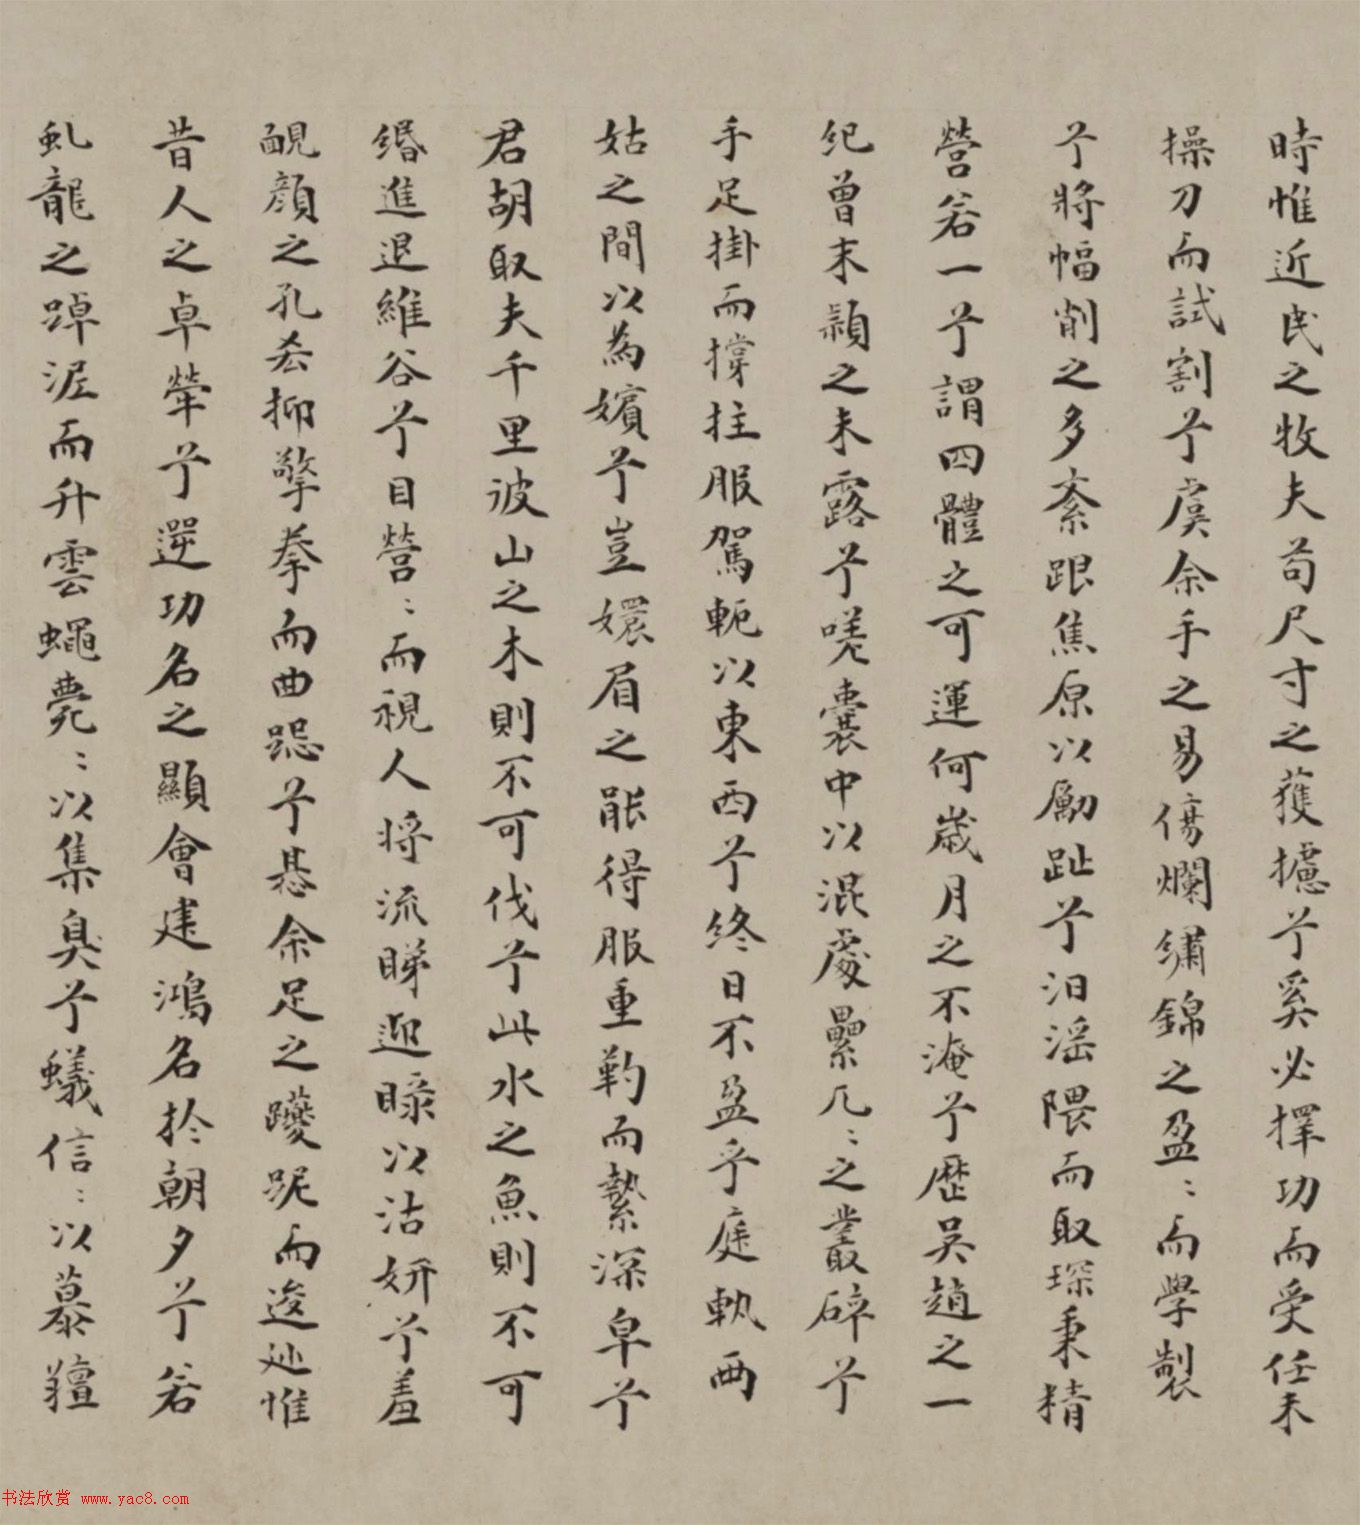 時惟近民之牧夫苟尺寸之獲攄兮奚必擇功而受任未
操刀而試割兮虞余手之易傷爛繡錦之盈〻而學製
兮將幅削之多紊跟焦原以勵趾兮汨滛隈而取琛秉精
營若一兮謂四體之可運何歲月之不淹兮歷吳趙之一
紀曾末穎之未露兮嗟囊中以混處纍凡〻之叢碎兮
手足掛而撐拄服駕軛以東西兮終日不盈乎庭執兩
姑之間以為嬪兮豈嬛眉之能得服重靮而縶深皁兮
君胡取夫千里波山之木則不可伐兮此水之魚則不可
緡進退維谷兮目營〻而視人將流睇迎睩以沽妍兮羞
靦顏之孔厺抑擎拳而曲跽兮惎余足之躨跜而逡廵惟
昔人之卓犖兮遻功名之顯會建鴻名於朝夕兮若
虬龍之踔泥而升雲蠅薨〻以集臭兮蟻信〻以慕羶
书法欣赏 www.yac8.com